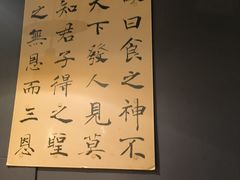 曰食之神不
天下發人見莫
知君子得之聖
之無恩而三恩